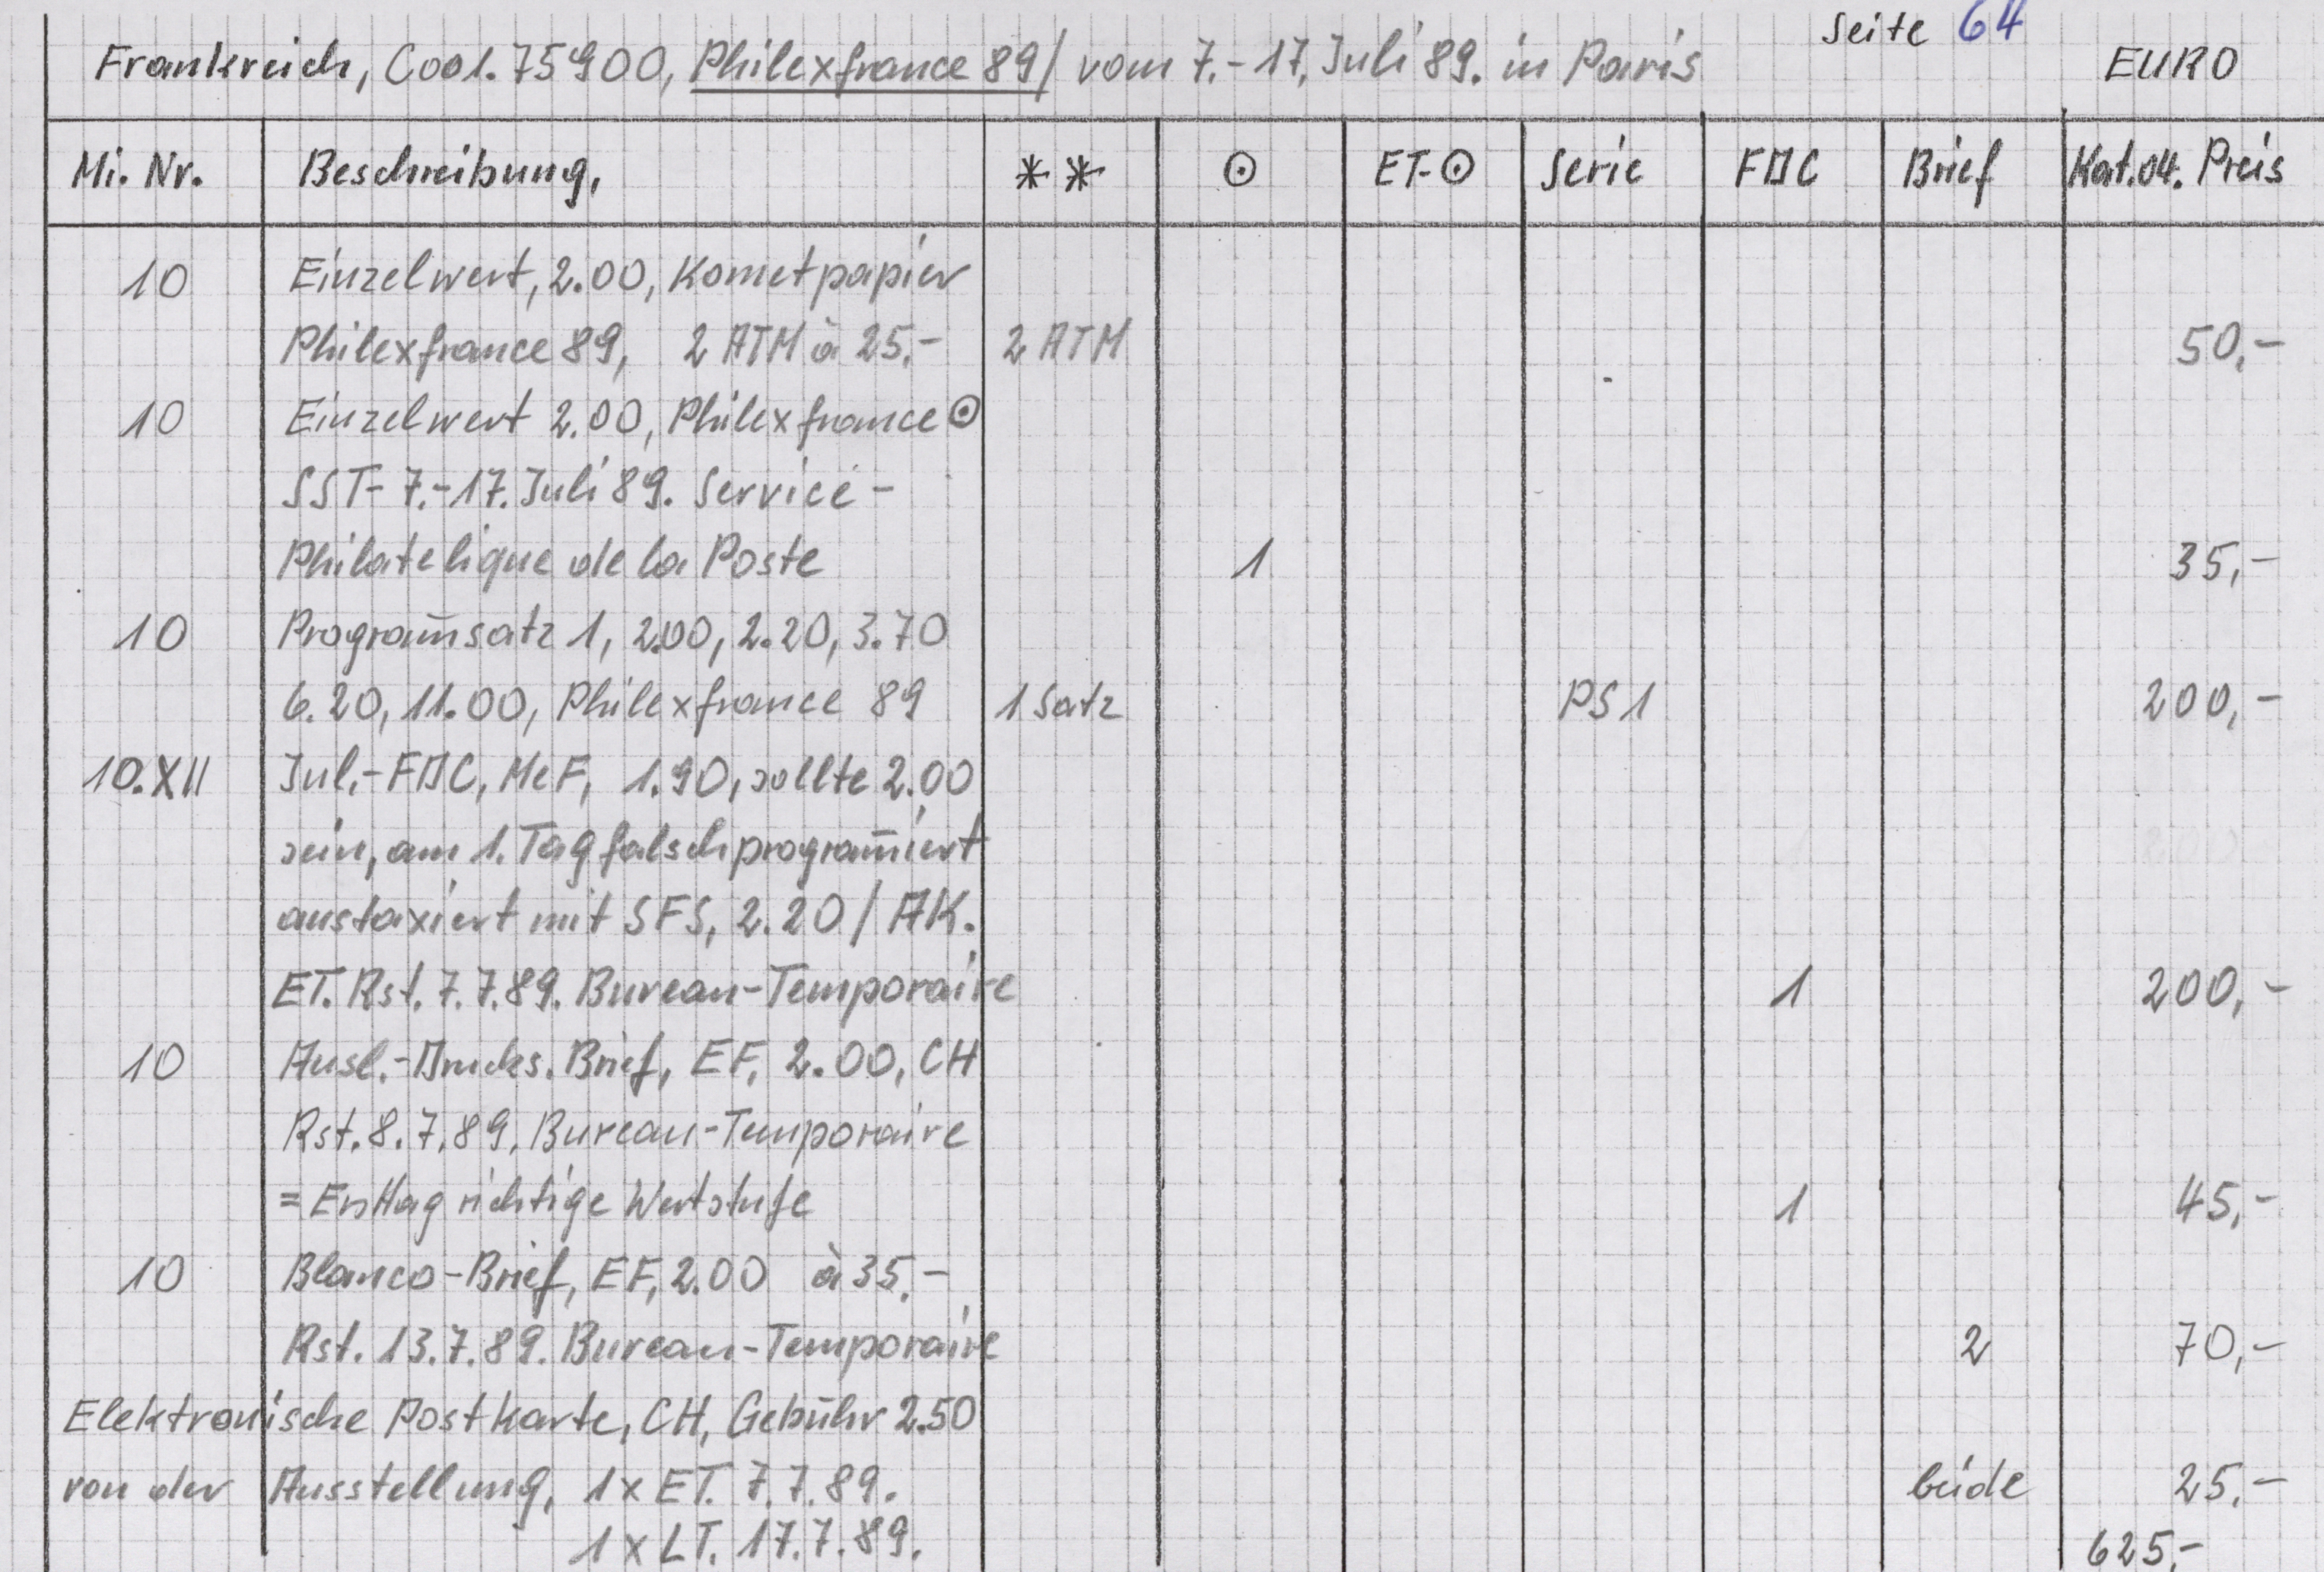 Seite 64
Frankreich, Cod. 75900, Philexfrance 89/ vom 7.-17. Juli 89. in Paris EURO
Mi. Nr. Beschreibung, ** ⊙ ET-⊙ Serie FDC Brief Kat.04. Preis
10 Einzelwert, 2.00, Kometpapier
Philexfrance 89, 2 ATM à 25,- 2 ATM 50,-
10 Einzelwert 2.00, Philexfrance ⊙
SST- 7.-17. Juli 89. Service-
Philatelique de la Poste 1 35,-
10 Programm̄satz 1, 2.00, 2.20, 3.70
6.20, 11.00, Philexfrance 89 1 Satz PS 1 200,-
10.XII Inl.-FDC, MeF, 1.90, sollte 2.00
sein, am 1. Tag falsch program̄iert
austaxiert mit SFS, 2.20 / AK.
ET. Rst. 7.7.89. Bureau-Temporaire 1 200,-
10 Ausl.-Drucks. Brief, EF, 2.00, CH
Rst. 8.7.89. Bureau-Temporaire
= Ersttag richtige Wertstufe 1 45,-
10 Blanco-Brief, EF, 2.00 à 35,-
Rst. 13.7.89. Bureau-Temporaire 2 70,-
Elektronische Postkarte, CH, Gebühr 2.50
von der Ausstellung, 1x ET. 7.7.89. beide 25,-
1x LT. 17.7.89. 625,-